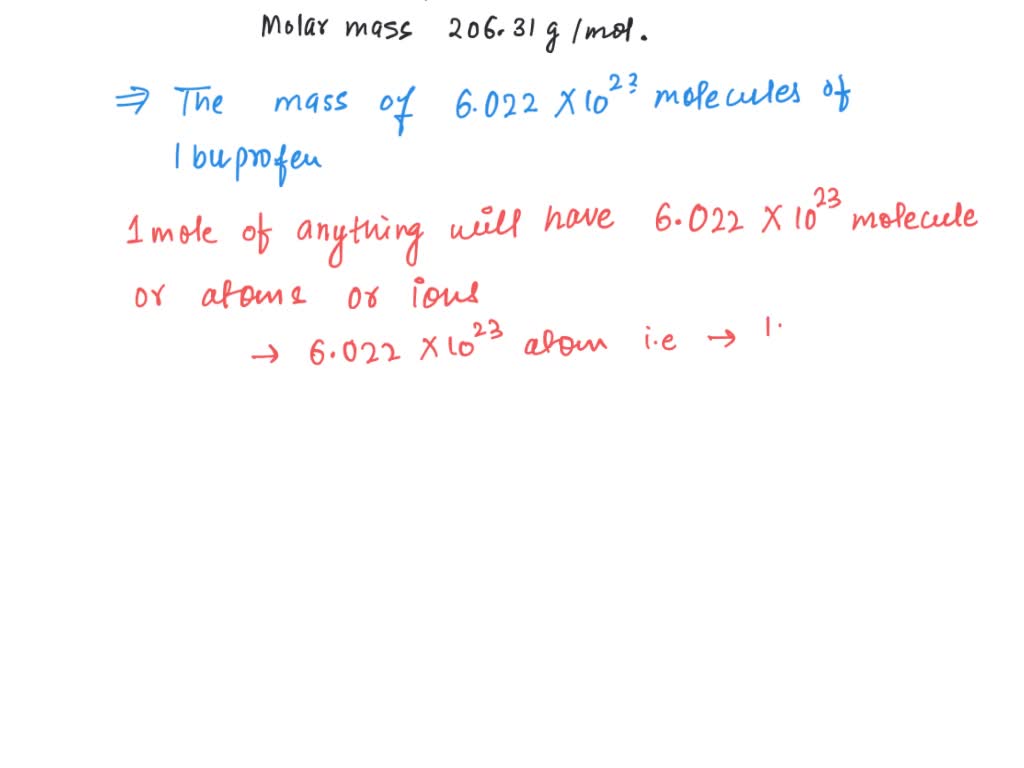 Molar mass 206.31 g/mol.
⇒ The mass of 6.022 X10²³ molecules of
Ibuprofen
1 mole of anything will have 6.022 X 10²³ molecule
or atoms or ions
→ 6.022 X10²³ atom i.e → 1.